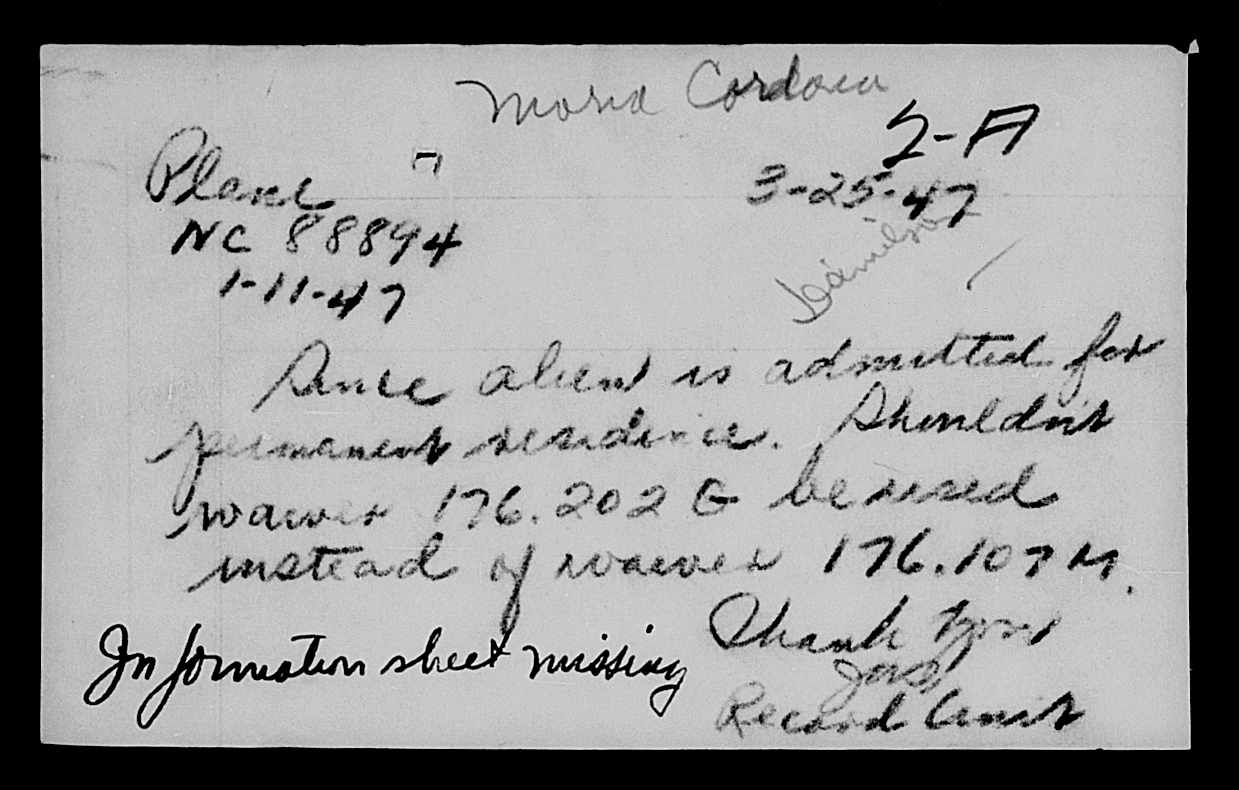 Maria Cordova
2-A
Plane
3-25-47
NC 88894
1-11-47
Since alien is admitted for
permanent residence. Shouldn't
waiver 176.202 G be used
instead of waiver 176.107 M.
Thank you
Information sheet missing
Record Unit